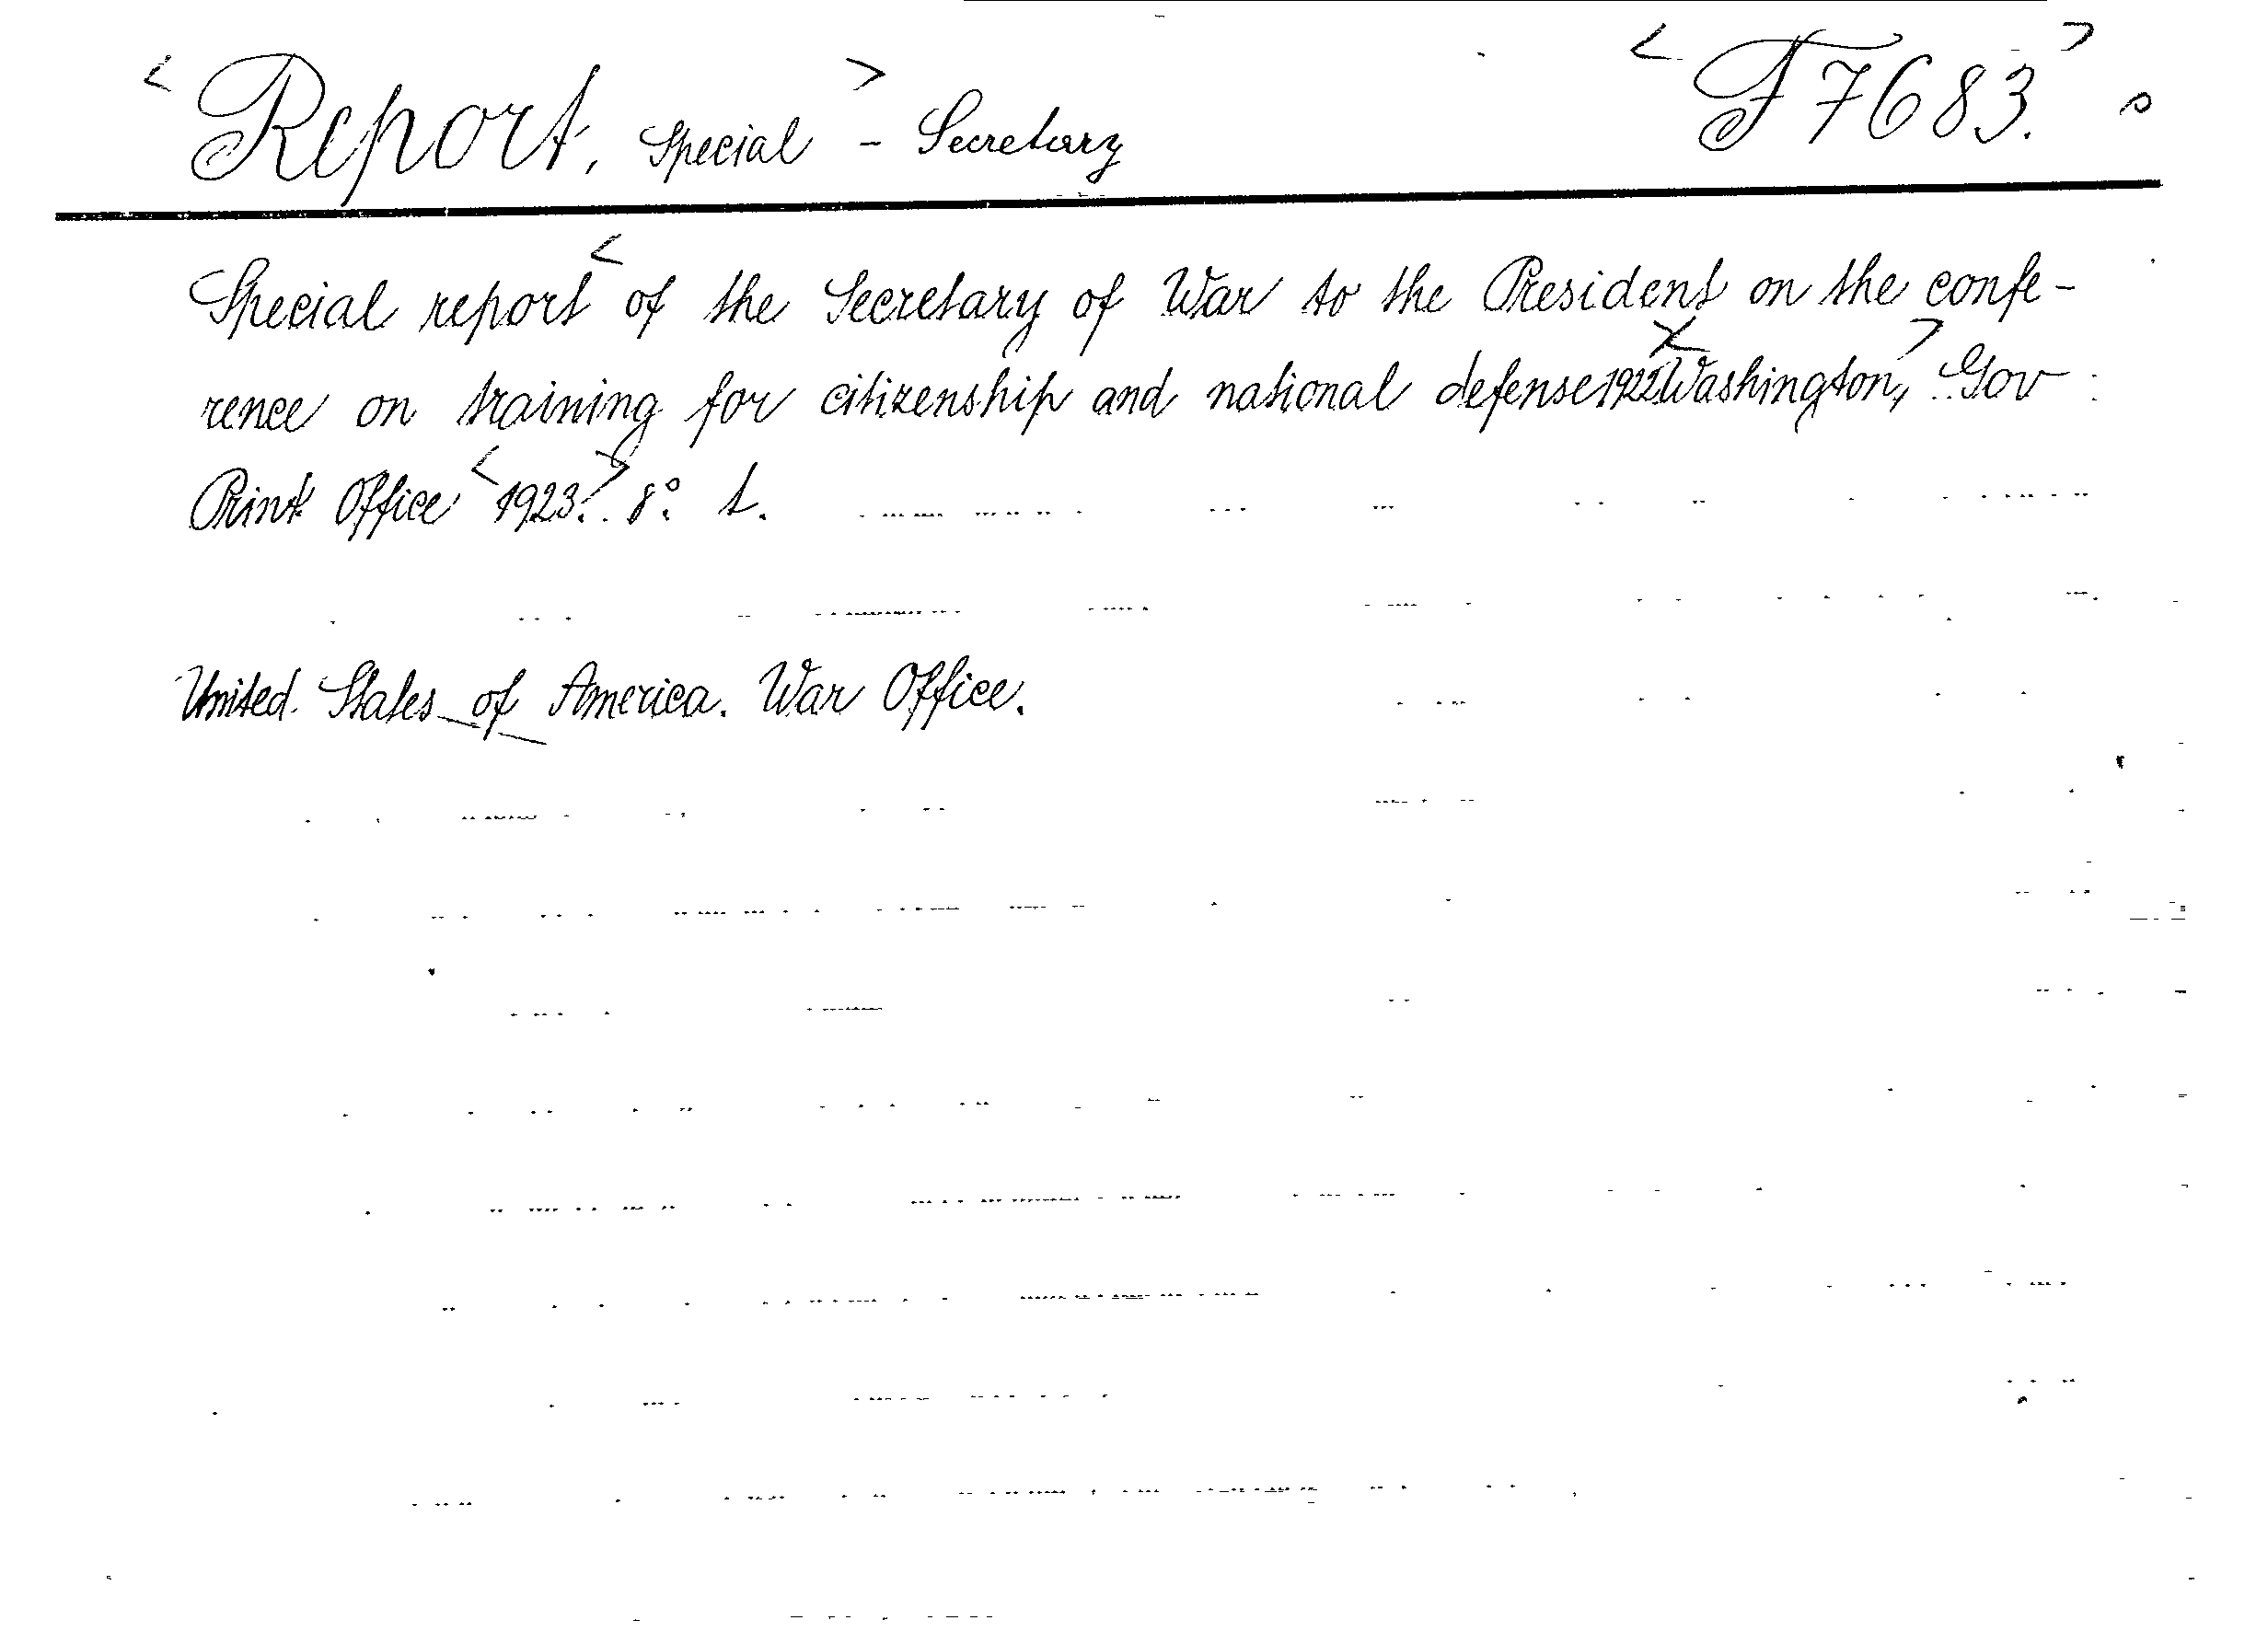 < Report, Special > - Secretary < F7683. >
Special report < of the Secretary of War to the President on the confe-
rence on training for citizenship and national defense 1922. Washington, > Gov
Print Office < 1923. > 8° t.
United States of America. War Office.